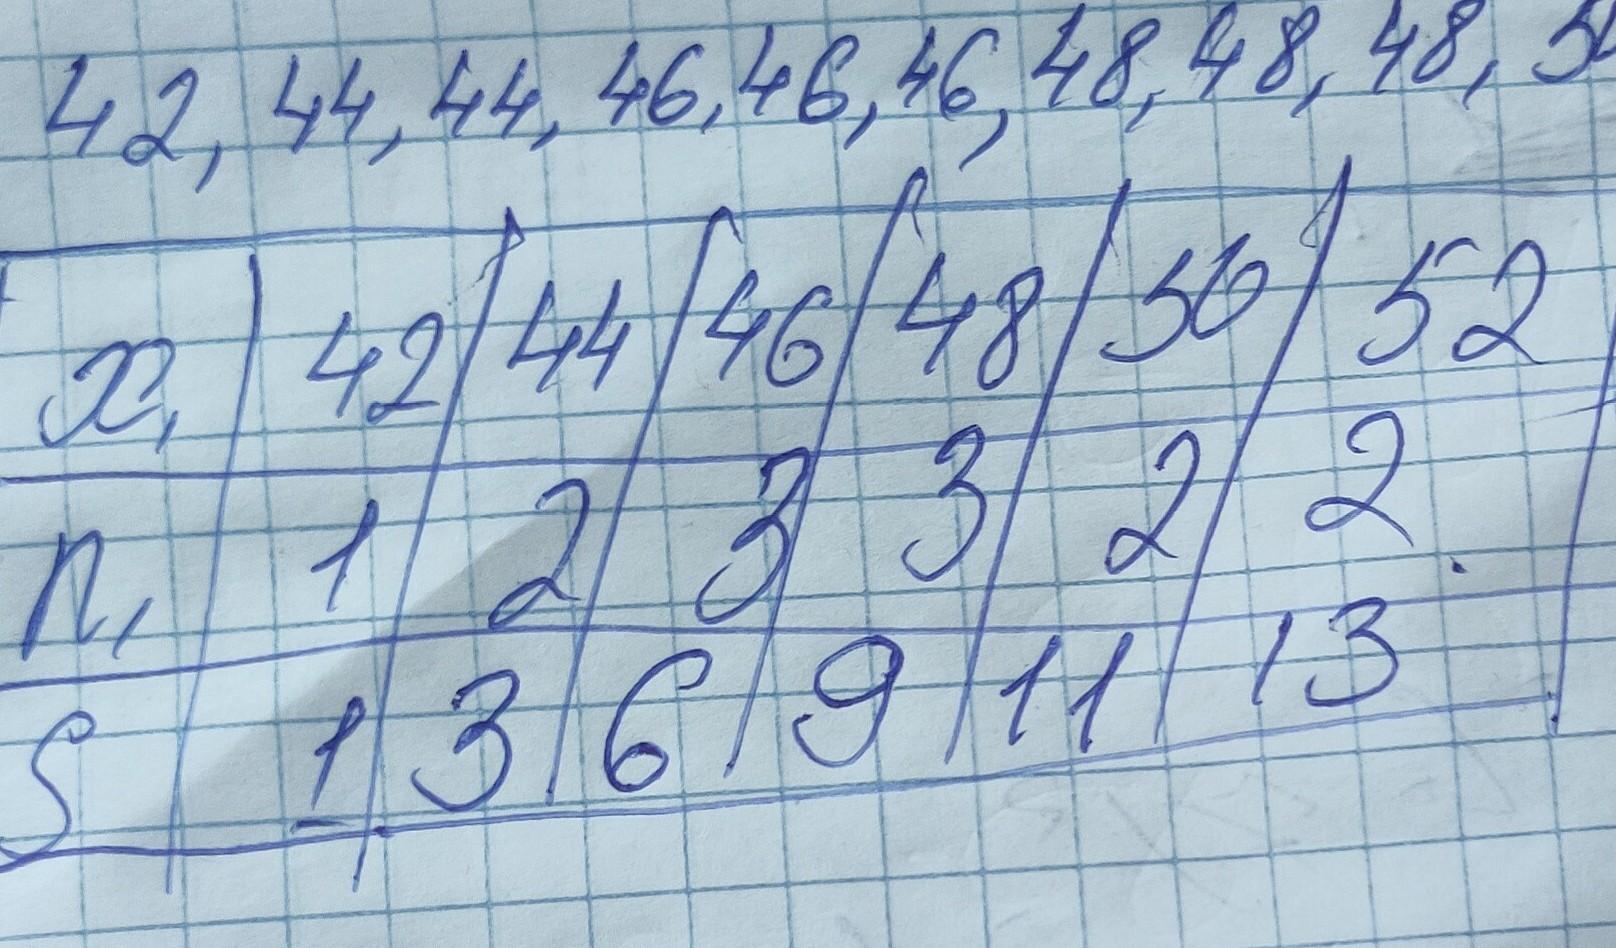 42, 44, 44, 46, 46, 46, 48, 48, 48, 50
x, 42 44 46 48 50 52
n, 1 2 3 3 2 2
S 1 3 6 9 11 13